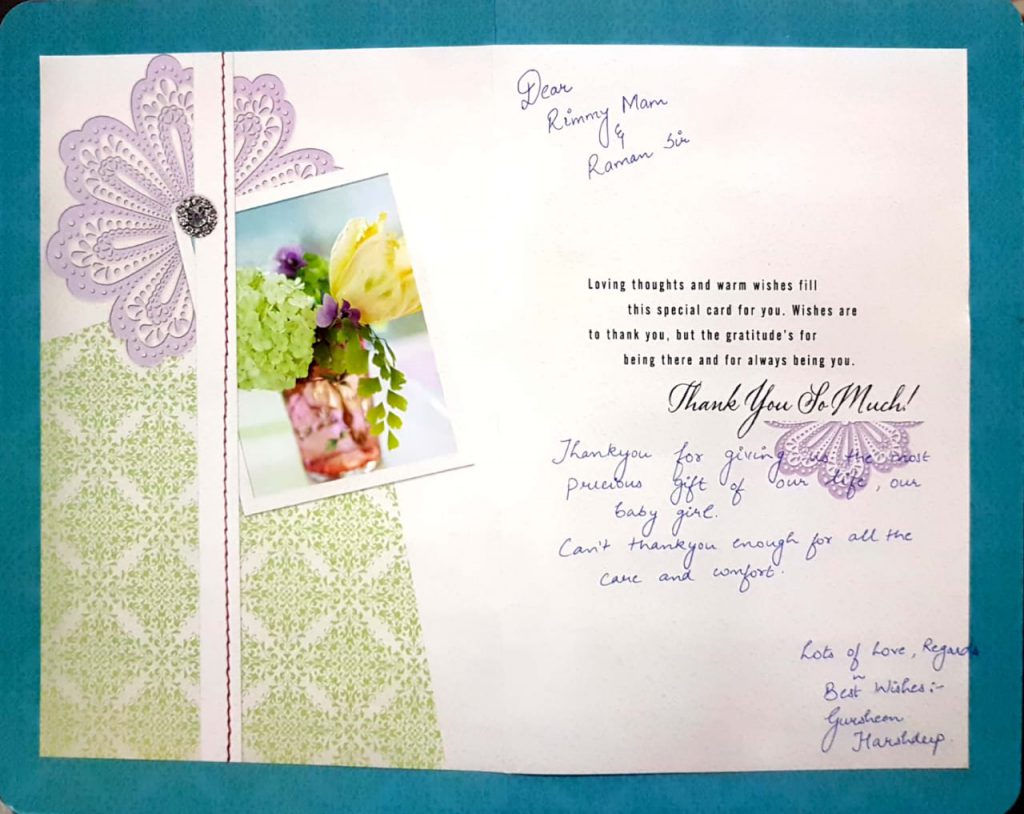 Dear
Rimmy Mam
&
Raman Sir
Loving thoughts and warm wishes fill
this special card for you. Wishes are
to thank you, but the gratitude's for
being there and for always being you.
Thank You So Much!
Thankyou for giving us the most
precious gift of our life, our
baby girl.
Can't thankyou enough for all the
care and comfort.
Lots of Love, Regards
~
Best Wishes:-
Gursheen
Harshdeep.